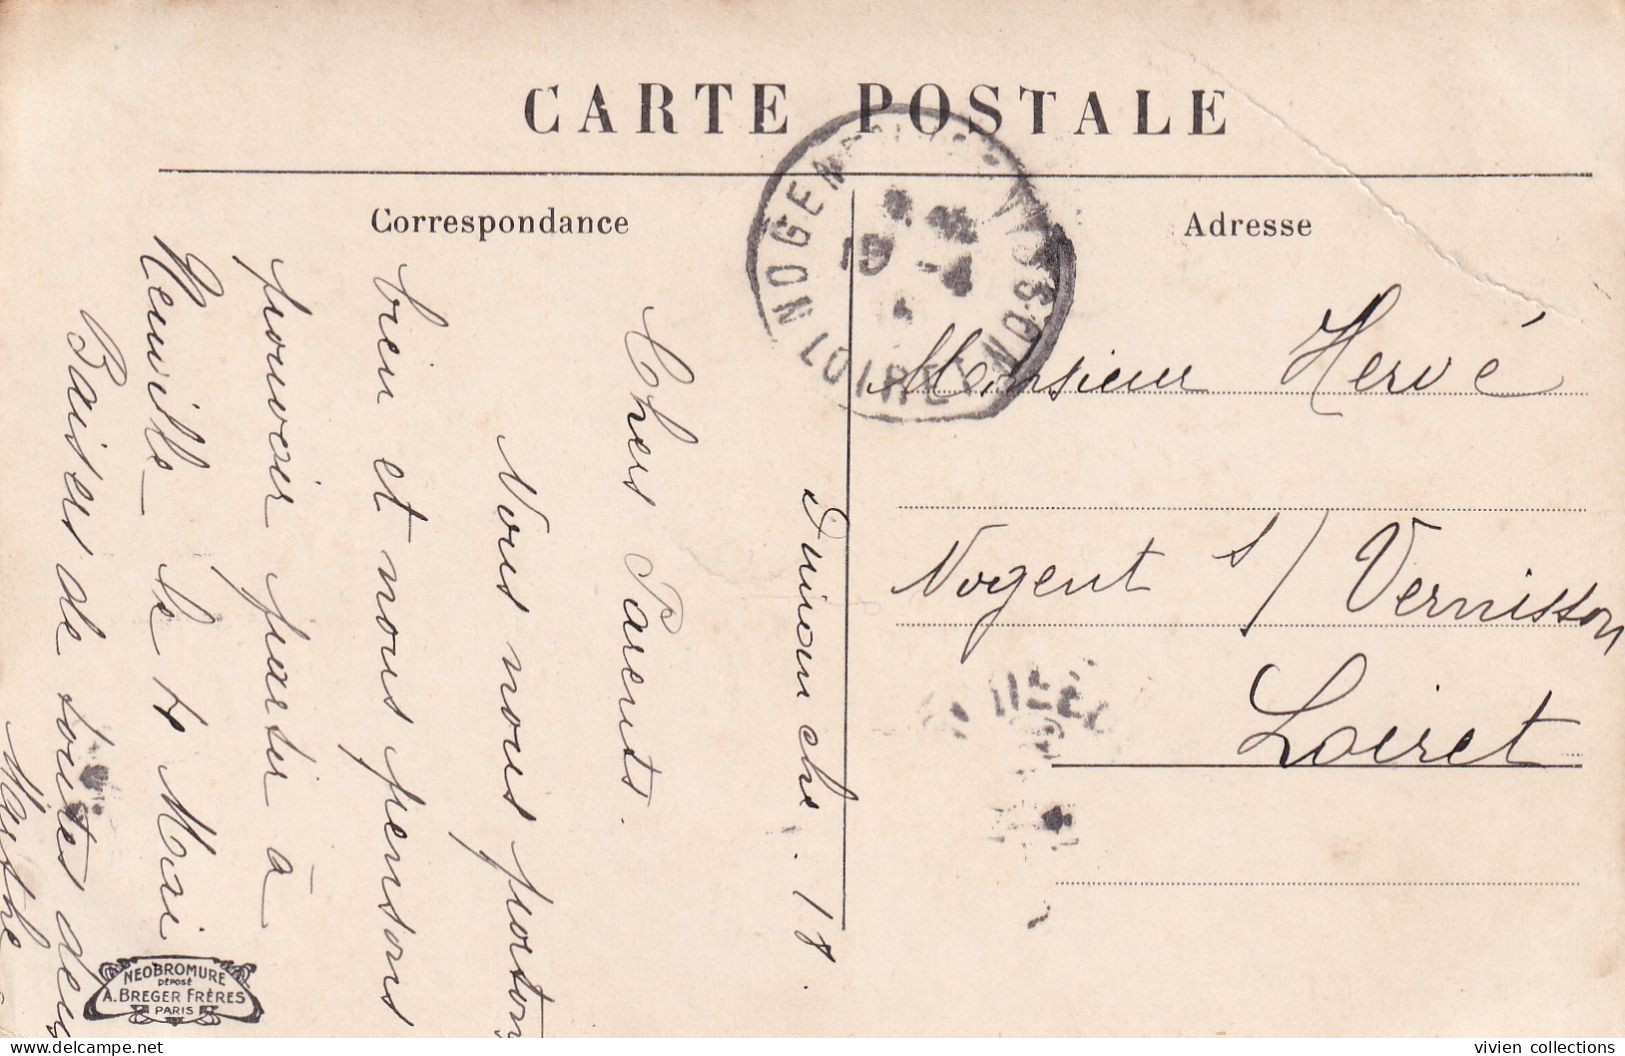 CARTE POSTALE
Correspondance
Adresse
Dimanche . 18
Chers Parents.
Nous nous portons
bien et nous pensons
pouvoir partir à
Neuville le 4 Mai
Baisers de toutes deux
Marthe
Monsieur Hervé
Nogent s/ Vernisson
Loiret
NOGENT VERNISSON
19 -4
LOIRET
NEOBROMURE
DÉPOSÉ
A. BREGER FRÈRES
PARIS
vivien collections